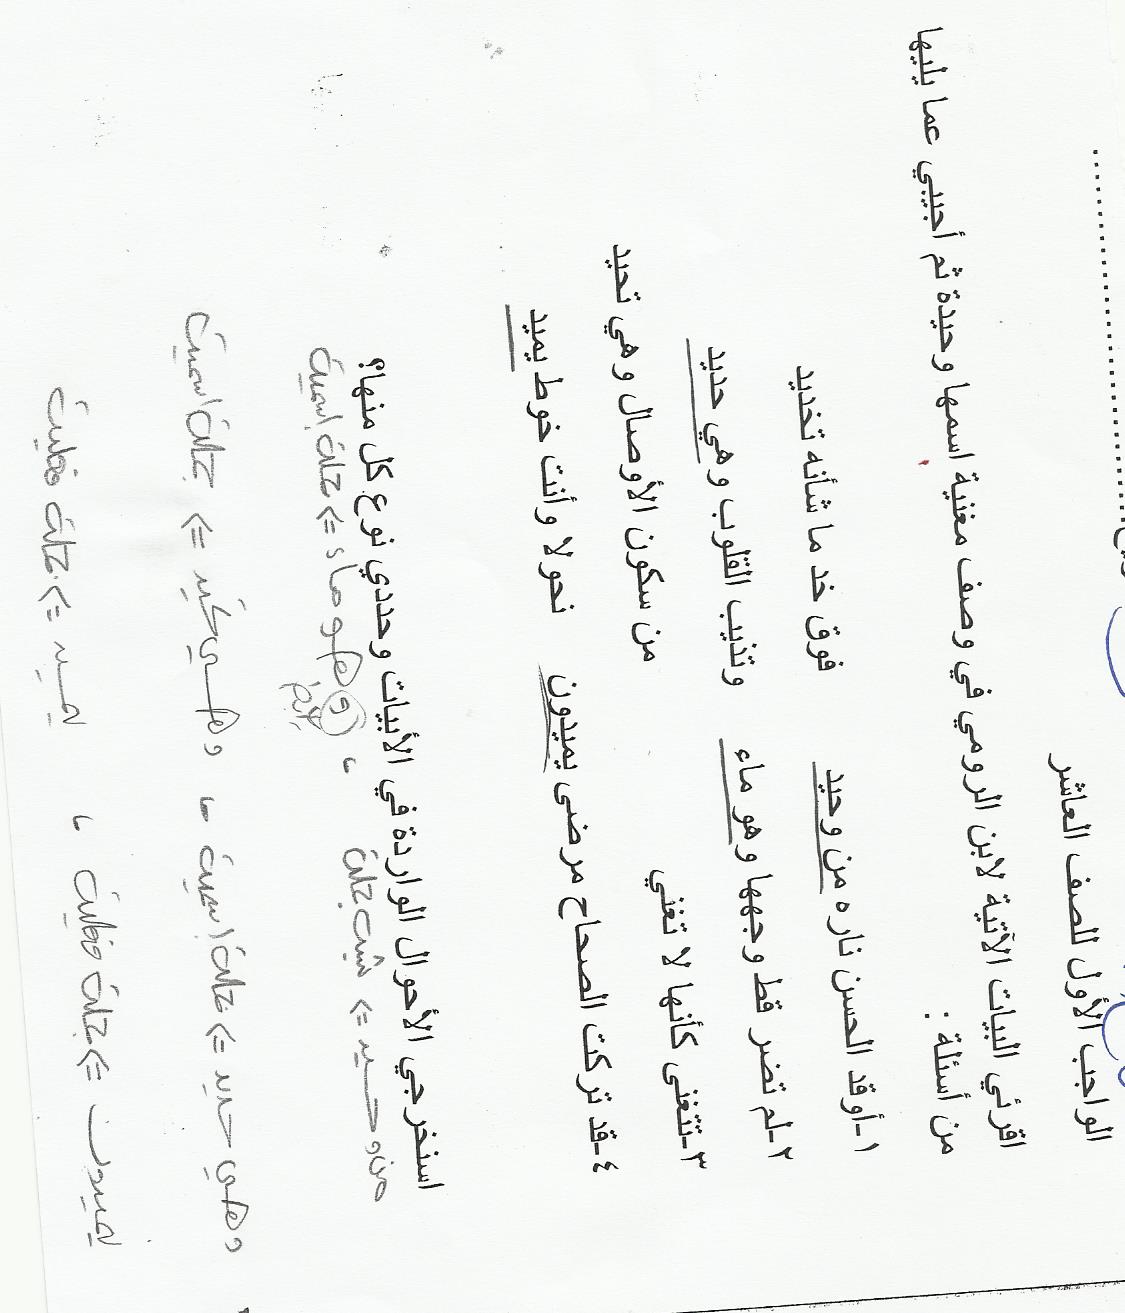 الواجب الأول للصف العاشر
اقرئي البيات الآتية لابن الرومي في وصف مغنية اسمها وحيدة ثم أجيبي عما يليها
من أسئلة :
١-أوقد الحسن ناره من وحيد فوق خد ما شأنه تخديد
٢-لم تضر قط وجهها وهو ماء وتذيب القلوب وهي حديد
٣-تتغنى كأنها لا تغني من سكون الأوصال وهي تجيد
٤-قد تركت الصحاح مرضى يميدون نحولا وأنت خوط يميد
استخرجي الأحوال الواردة في الأبيات وحددي نوع كل منها؟
من وحيد => شبه جملة ، وهو ماء => جملة اسمية
وهي حديد => جملة اسمية ، وهي تجيد => جملة اسمية
يميدون => جملة فعلية ، يميد => جملة فعلية